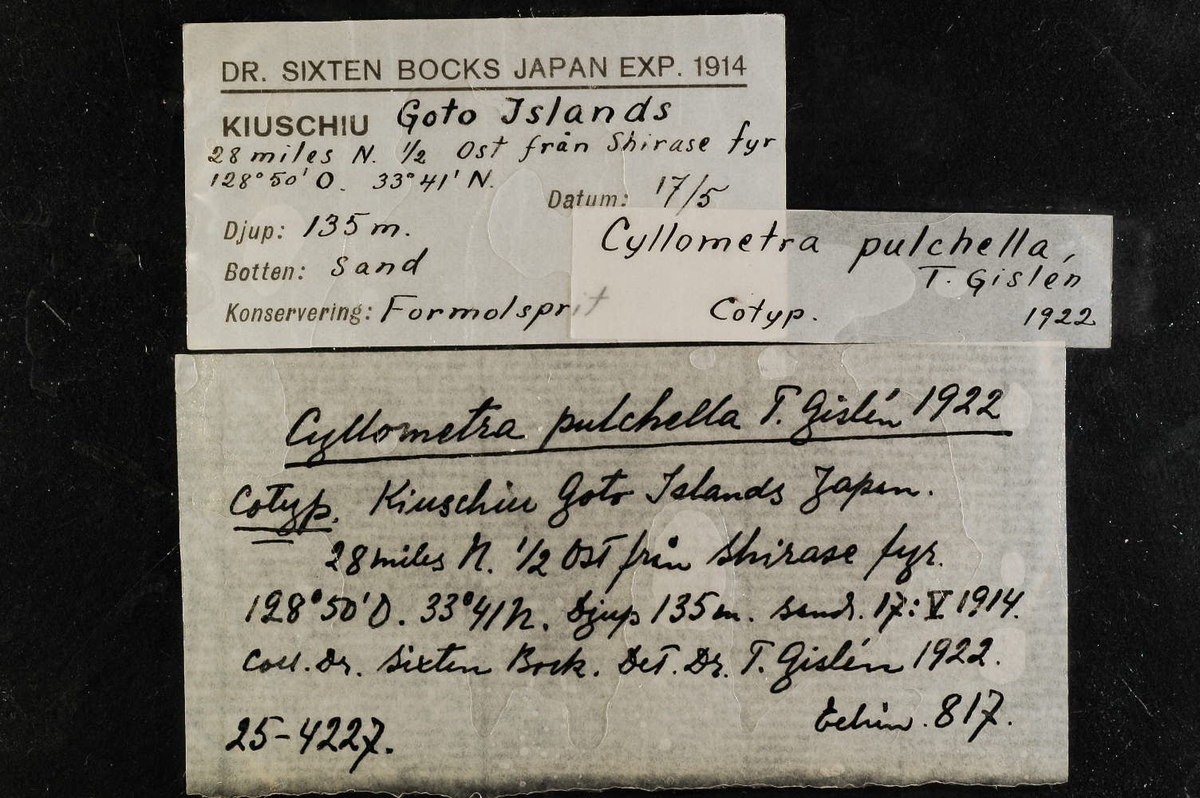 DR. SIXTEN BOCKS JAPAN EXP. 1914
KIUSCHIU Goto Islands
28 miles N. ½ Ost från Shirase fyr
128°50'O. 33°41'N.
Datum: 17/5
Djup: 135 m.
Botten: Sand
Konservering: Formolsprit
Cyllometra pulchella,
T. Gislén
Cotyp. 1922
Cyllometra pulchella T. Gislén 1922
Cotyp. Kiuschiu Goto Islands Japan.
28 miles N. ½ Ost från Shirase fyr.
128°50'O. 33°41'N. Djup 135 m. Sand. 17:V 1914.
Coll. Dr. Sixten Bock. Det. Dr. T. Gislén 1922.
Echin. 817.
25-4227.